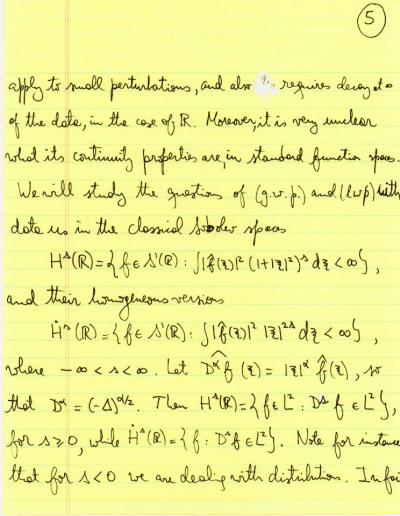 5
apply to small perturbations, and also requires decay at ∞
of the data, in the case of ℝ. Moreover, it is very unclear
what its continuity properties are, in standard function spaces.
We will study the questions of (g.w.p.) and (l.w.p) with
data u₀ in the classical Sobolev spaces
Hˢ(ℝ) = { f ∈ S'(ℝ) : ∫|f̂(ξ)|² (1+|ξ|²)ˢ dξ < ∞ },
and their homogeneous versions
Ḣˢ(ℝ) = { f ∈ S'(ℝ) : ∫|f̂(ξ)|² |ξ|²ˢ dξ < ∞ },
where -∞ < s < ∞. Let D̂ᵅf (ξ) = |ξ|ᵅ f̂(ξ), so
that Dᵅ = (-Δ)^{α/2}. Then Hˢ(ℝ) = { f ∈ L² : Dˢ f ∈ L² },
for s ≥ 0, while Ḣˢ(ℝ) = { f : Dˢf ∈ L² }. Note for instance
that for s < 0 we are dealing with distributions. In fac